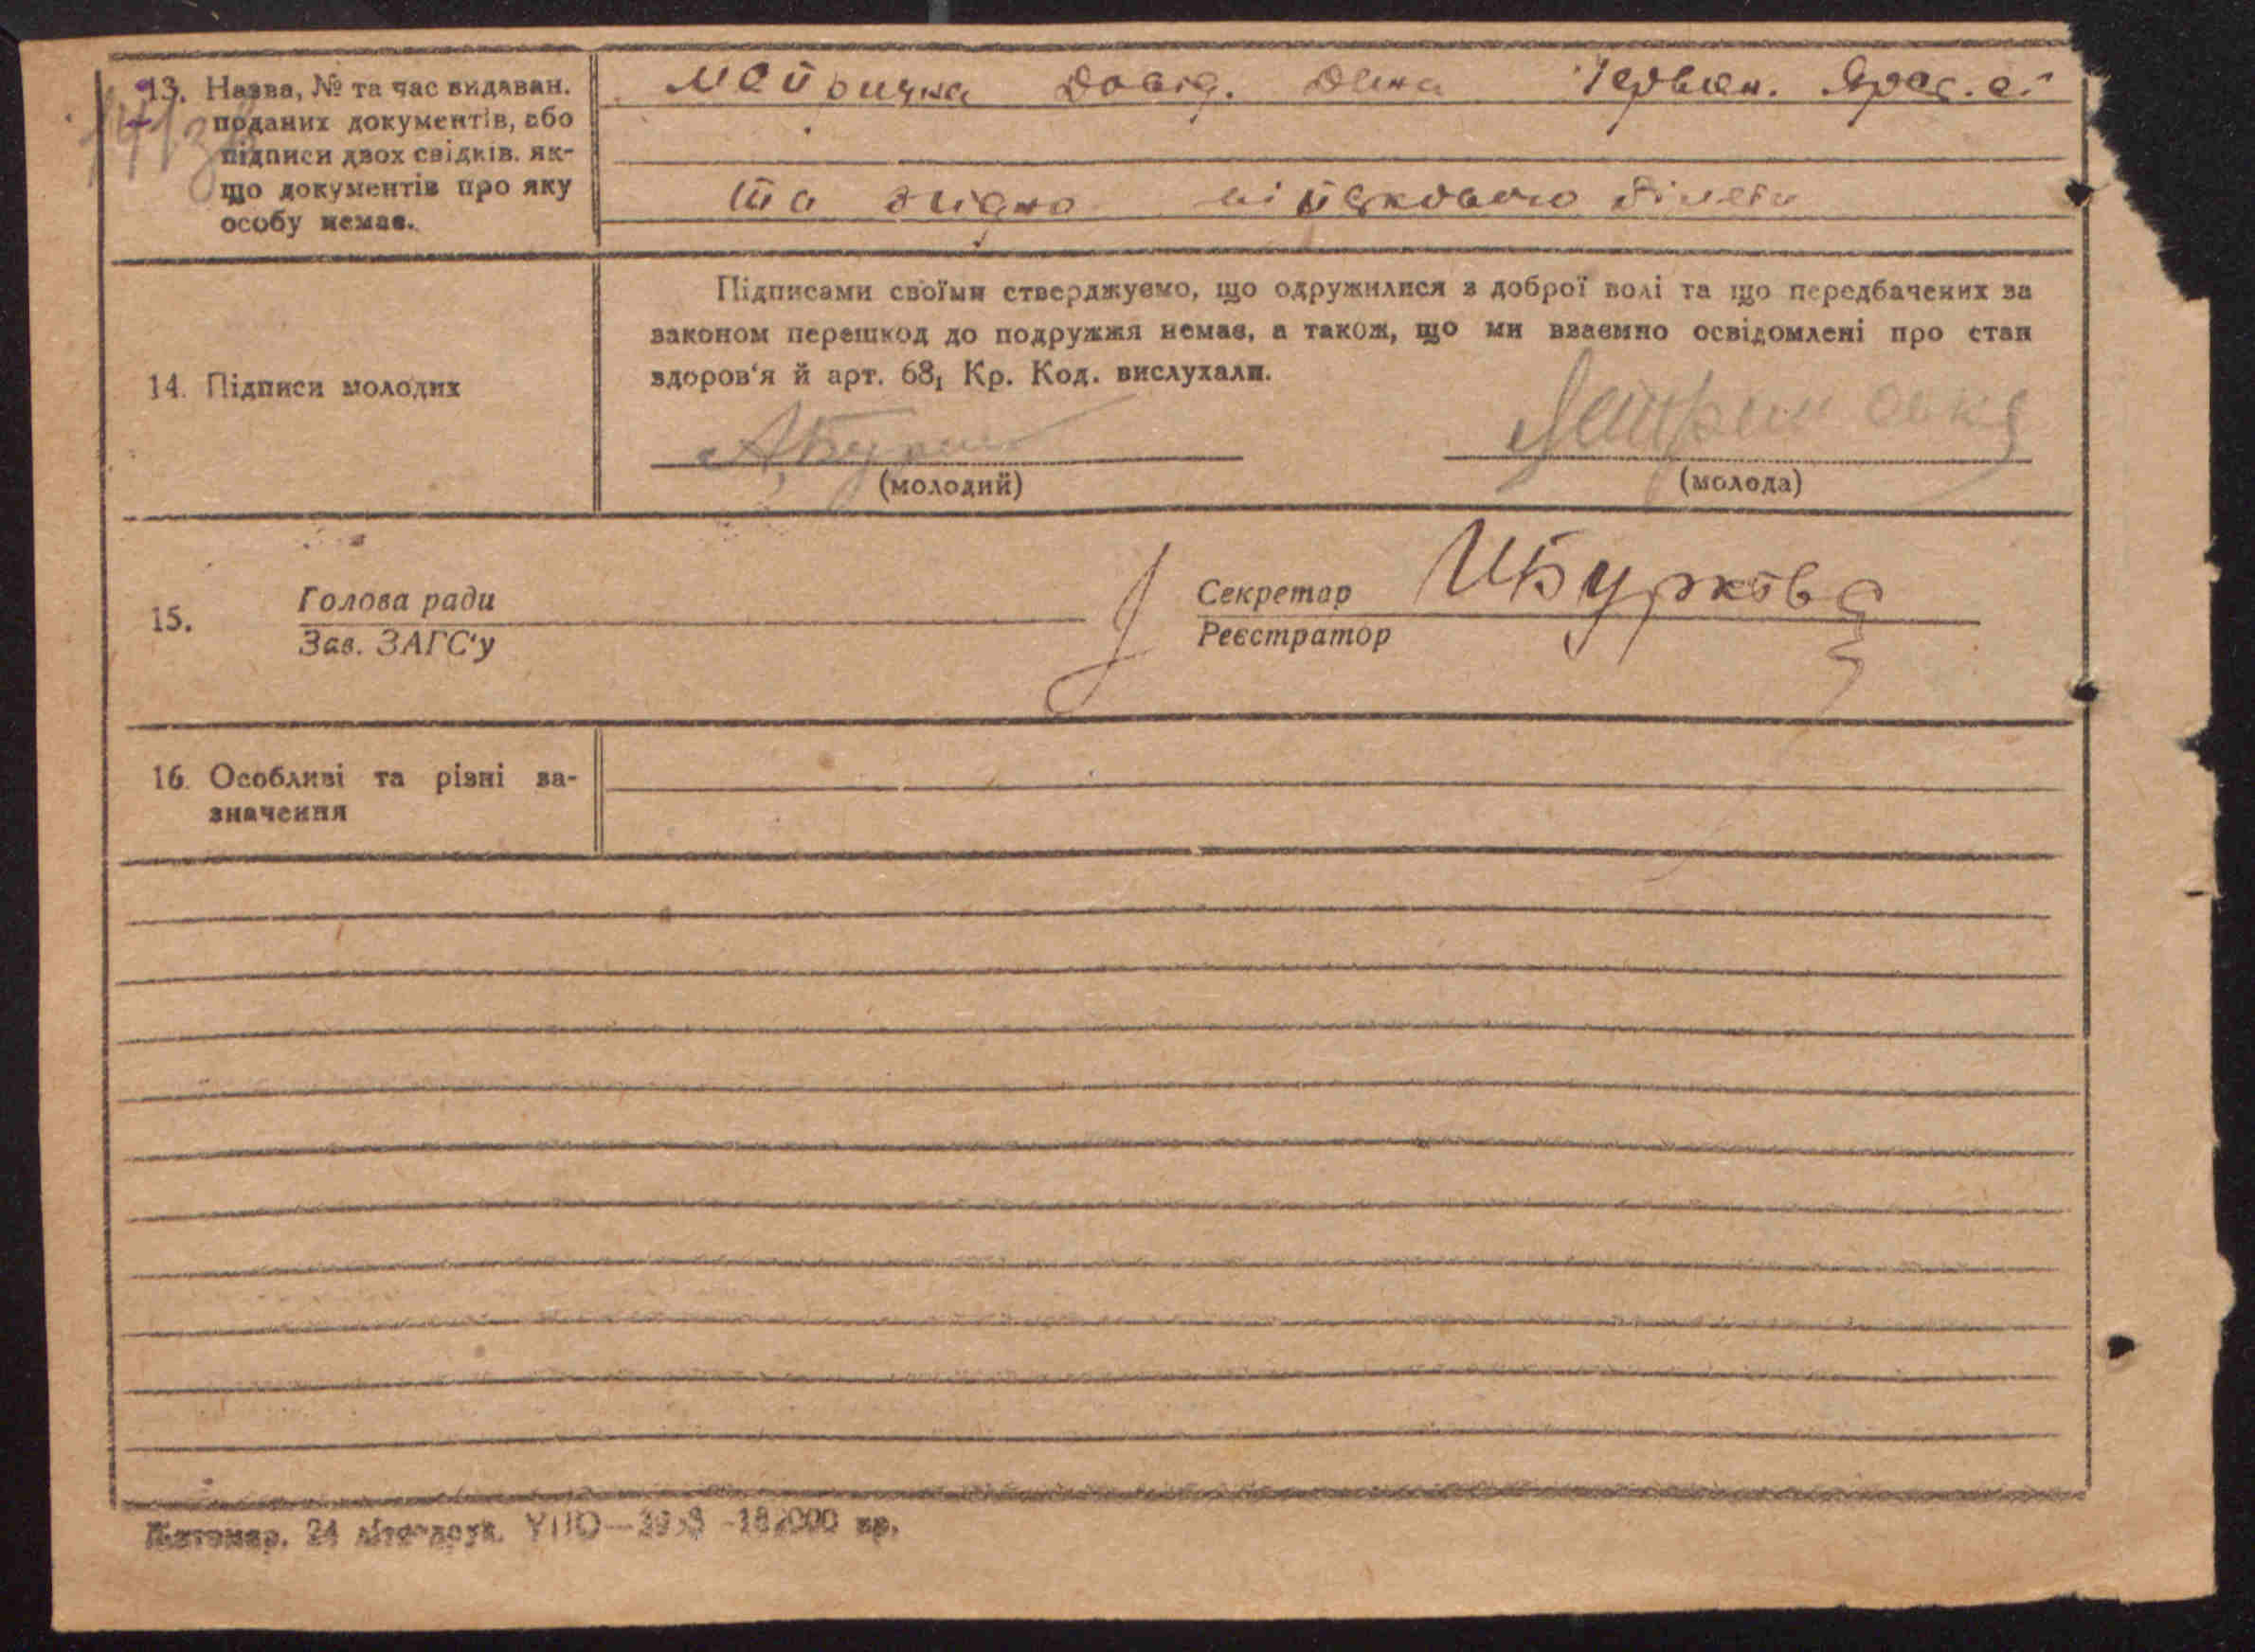 13. Назва, № та час видаван.
поданих документів, або
підписи двох свідків, як-
що документів про яку
особу немає.
Метрична Довід. Дана Червон.
та згідно військового білета
14. Підписи молодих
Підписами своїми стверджуємо, що одружилися з доброї волі та що передбачених за
законом перешкод до подружжя немає, а також, що ми взаємно освідомлені про стан
здоров'я й арт. 68₁ Кр. Код. вислухали.
(молодий)
(молода)
15.
Голова ради
Зав. ЗАГС'у
Секретар
Реєстратор
16. Особливі та різні за-
значення
Житомир. 24